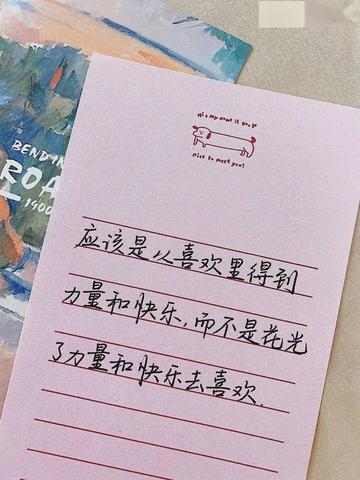 BENDIN
ROA
1900
Hi~ my name is Dongo
nice to meet you!
应该是从喜欢里得到
力量和快乐,而不是花光
了力量和快乐去喜欢.